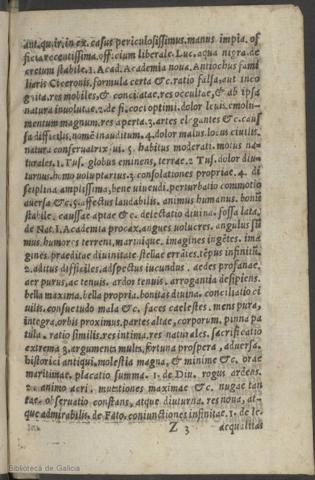 ant. qu. ir. in ex. casus periculosissimus. manus impia. of
ficia recentissima. off. cium liberale. Luc. aqua nigra. de
cretum stabile. 1. Acad. Academia noua. Antiochus fami
liaris Ciceronis. formula certa &c. ratio falsa, aut inco
gnita. res mobiles, & concitatæ. res occultæ, & ab ipsa
natura inuolutæ. 2. de fi. coci optimi. dolor leuis. emolu-
mentum magnum. res aperta. 3. artes elegantes & c. caus
sa difficilis. nomē inauditum. 4. dolor malus. locus ciuilis.
natura conseruatrix sui. 5. habitus moderati. motus na-
turales. 1. Tus. globus eminens, terræ. 2 Tus. dolor diu-
turnus. homo voluptarius. 3. consolationes propriæ. 4. di
sciplina amplissima, bene viuendi. perturbatio commotio
auersa & c. 5. affectus laudabilis. animus humanus. bonū
stabile. caussae aptæ & c. delectatio diuina. fossa lata.
de Nat. 1. Academia procax. angues volucres. angulus fir
mus. humores terreni, marinique. imagines ingētes. ima
gines. praeditæ diuinitate. stellae errātes. tēpus infinitū.
2. aditus difficiles, adspectus iucundus. aedes profanæ.
aer purus, ac tenuis. ardor tenuis. arrogantia desipiens.
bella maxima. bella propria. bonitas diuina. conciliatio ci
uilis. consuetudo mala & c. faces caelestes. mens pura,
integra. orbis proximus. partes altæ, corporum. pinna pa
tula. ratio similis. res intima. res naturales. sacrificatio
extrema 3. argumenta multa. fortuna prospera, aduersa.
historici antiqui. molestia magna, & minime & c. orae
maritimæ. placatio summa. 1. de Diu. rogus ardens.
2. animo aeri. mutationes maximae & c. nugae tan
tæ. obseruatio constans, atque diuturna. res noua, at-
que admirabilis. de Fato. coniunctiones infinitæ. 1. de le.
Z 3 aequalitas
Biblioteca de Galicia